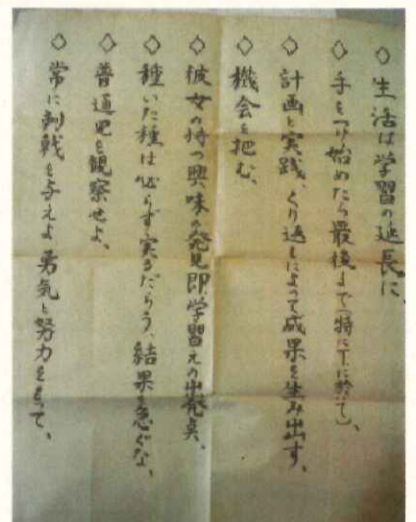 ◇生活は学習の延長に、
◇手をつけ始めたら最後まで(特にTに於て)、
◇計画と実践、くり返しによって成果を生み出す、
◇機会を把む、
◇彼女の持つ興味の発見即学習えの出発点、
◇種いた種は必らず実るだらう、結果を急ぐな、
◇普通児を観察せよ、
◇常に刺戟を与えよ 勇気と努力をもって、